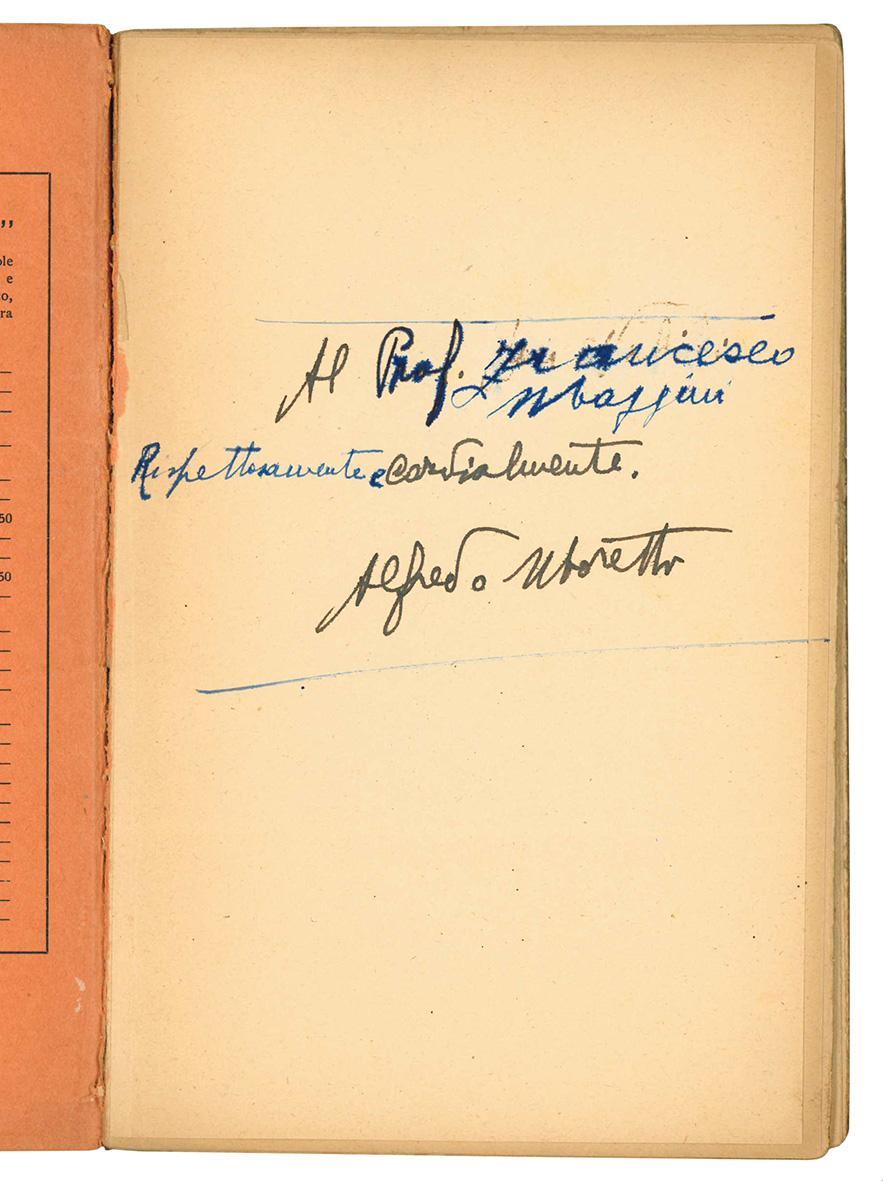 „
ole
e
to,
ra
50
50
Al Prof. Francesco
Maggini
Rispettosamente e cordialmente.
Alfredo Moretto